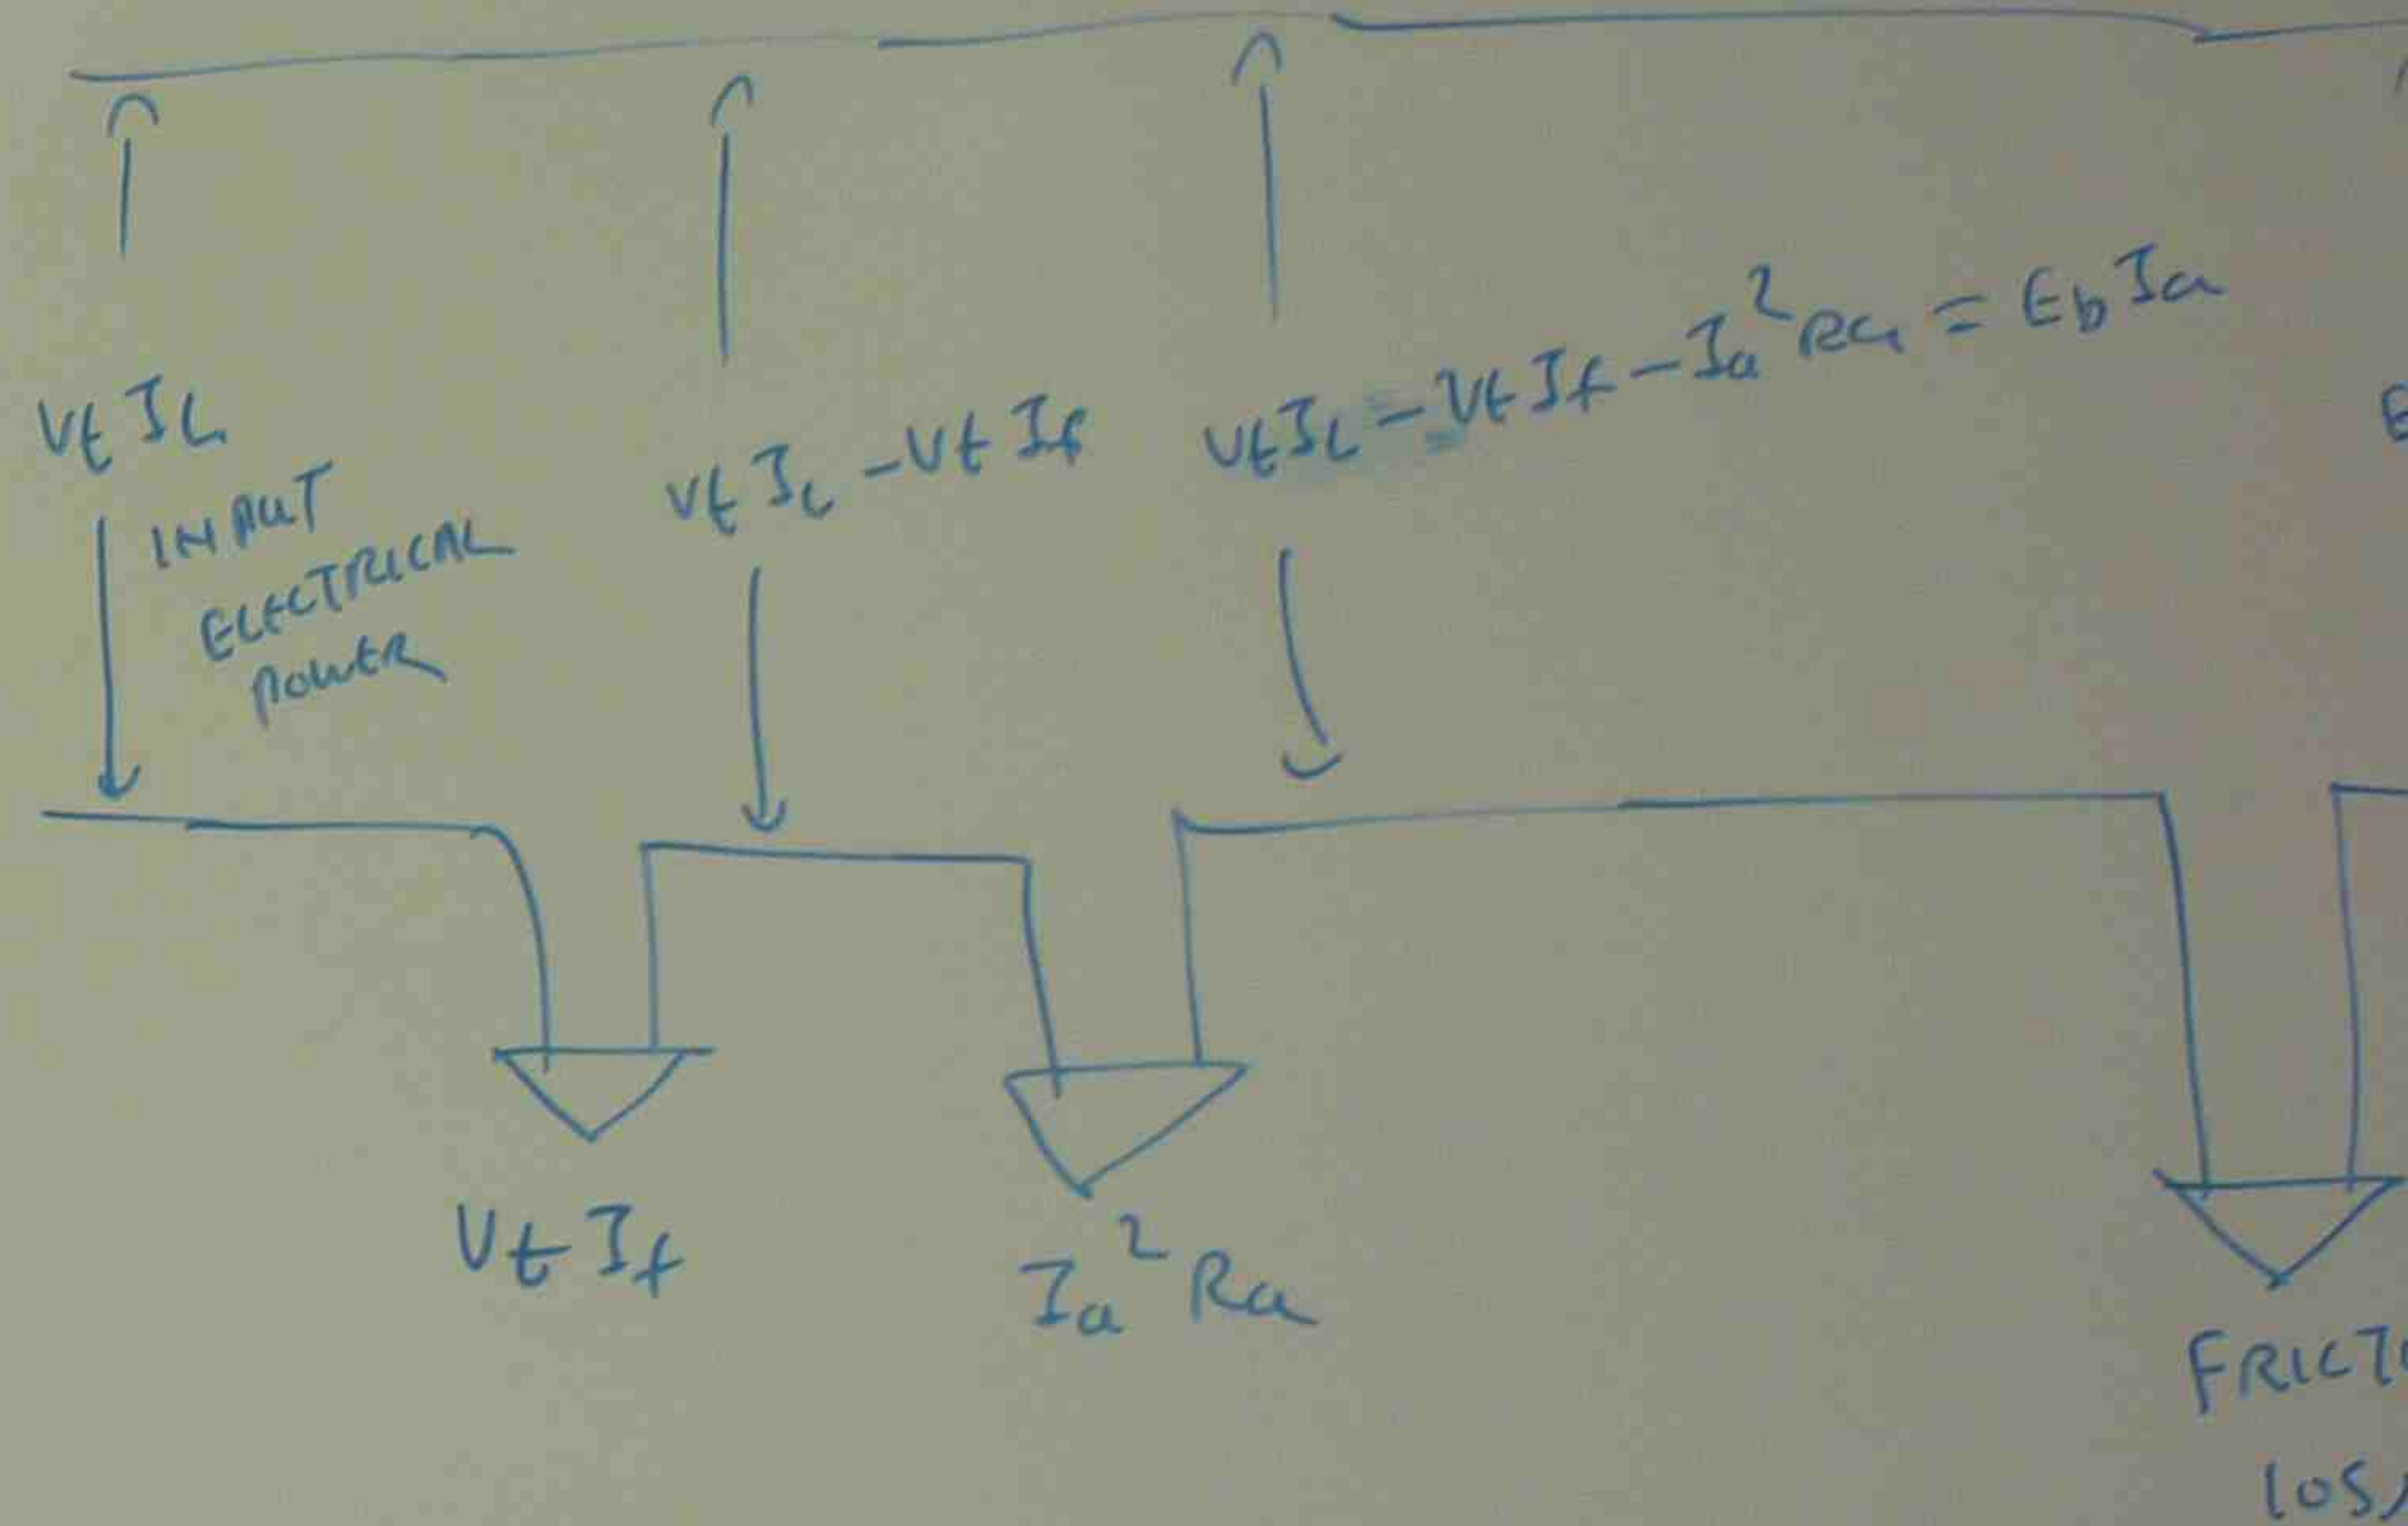 Vt IL
INPUT
ELECTRICAL
POWER
Vt IL - Vt If
Vt IL - Vt If - Ia² Ra = Eb Ia
E
Vt If
Ia² Ra
FRICTI
LOSS